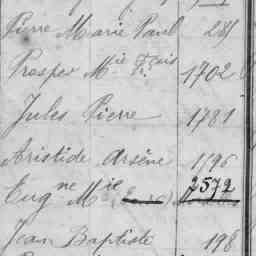 Pierre Marie Paul 281
Prosper Mie Fçois 1702
Jules Pierre 1781
Aristide Arsène 1196
Eugne Mie 2572
Jean Baptiste 198